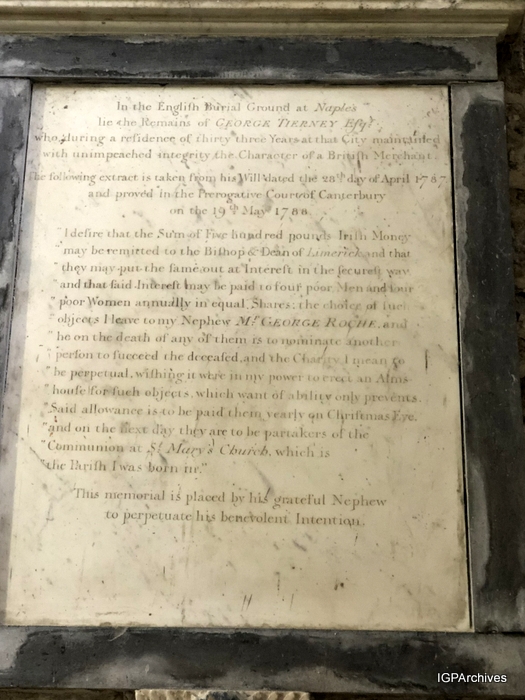 In the English Burial Ground at Naples
lie the Remains of GEORGE TIERNEY Esqr.
who during a residence of thirty three Years at that City maintained
with unimpeached integrity the Character of a British Merchant.
The following extract is taken from his Will dated the 28th day of April 1787.
and proved in the Prerogative Court of Canterbury
on the 19th May 1788.
"I desire that the Sum of Five hundred pounds Irish Money
" may be remitted to the Bishop & Dean of Limerick and that
" they may put the same out at Interest in the securest way
" and that said Interest may be paid to four poor Men and four
" poor Women annually in equal Shares; the choice of such
" objects I leave to my Nephew Mr. GEORGE ROCHE, and
" he on the death of any of them is to nominate another
" person to succeed the deceased, and the Charity I mean to
" be perpetual, wishing it were in my power to erect an Alms-
" house for such objects, which want of ability only prevents.
" Said allowance is to be paid them yearly on Christmas Eve,
" and on the next day they are to be partakers of the
" Communion at St. Mary's Church, which is
" the Parish I was born in."
This memorial is placed by his grateful Nephew
to perpetuate his benevolent Intention.
IGPArchives